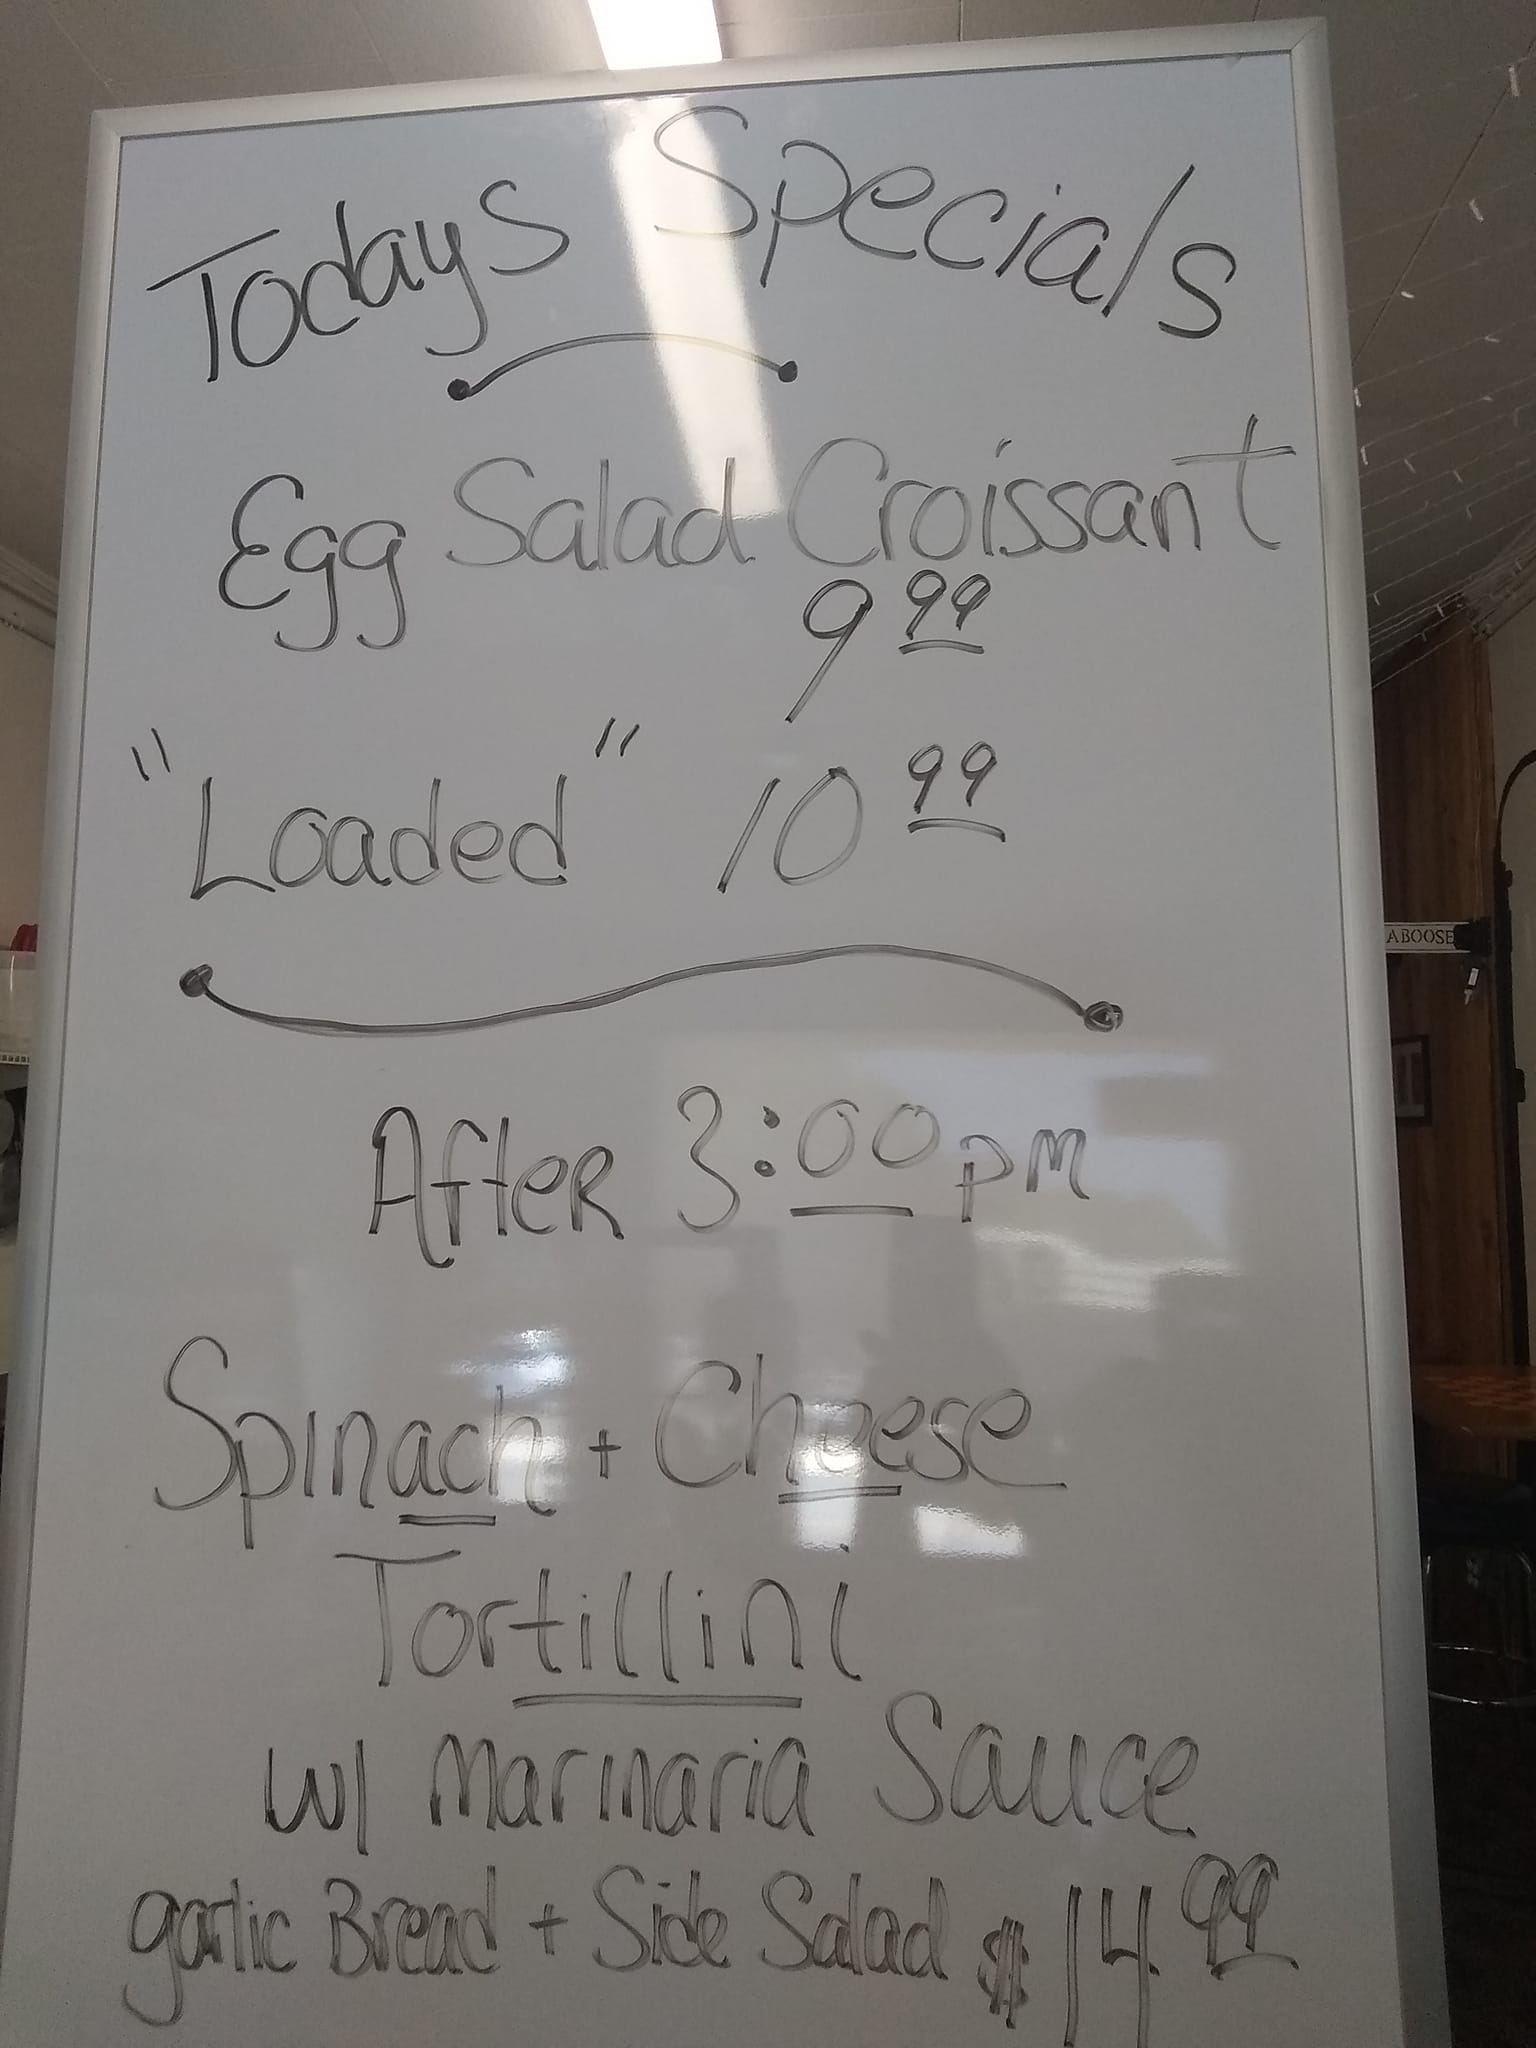 Todays Specials
Egg Salad Croissant
9 99
"Loaded" 10 99
After 3:00 pm
Spinach + Cheese
Tortillini
w/ Marinaria Sauce
garlic Bread + Side Salad $14 99
ABOOSE